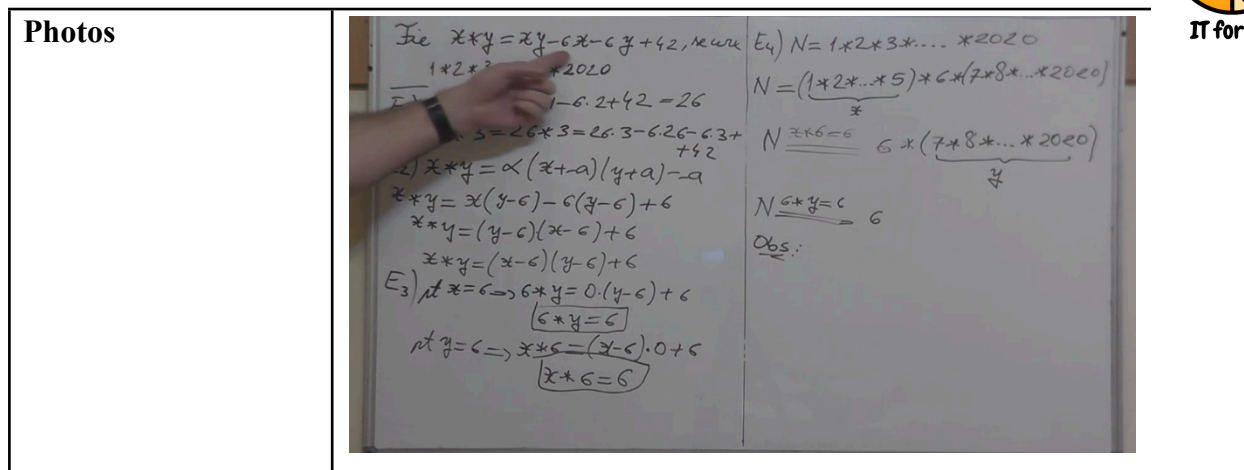 Photos
IT for
Fie x*y=xy-6x-6y+42,
1*2*3 *2020
1-6.2+42=26
3=26*3=26.3-6.26-6.3+
+42
2) x*y=α(x+-a)(y+a)-a
x*y=x(y-6)-6(y-6)+6
x*y=(y-6)(x-6)+6
x*y=(x-6)(y-6)+6
E3) pt x=6=>6*y=0.(y-6)+6
6*y=6
pt y=6=>x*6=(x-6).0+6
x*6=6
E4) N=1*2*3*.... *2020
N=(1*2*...*5)*6*(7*8*...*2020)
x
N x*6=6 6*(7*8*...*2020)
y
N 6*y=6 6
Obs: